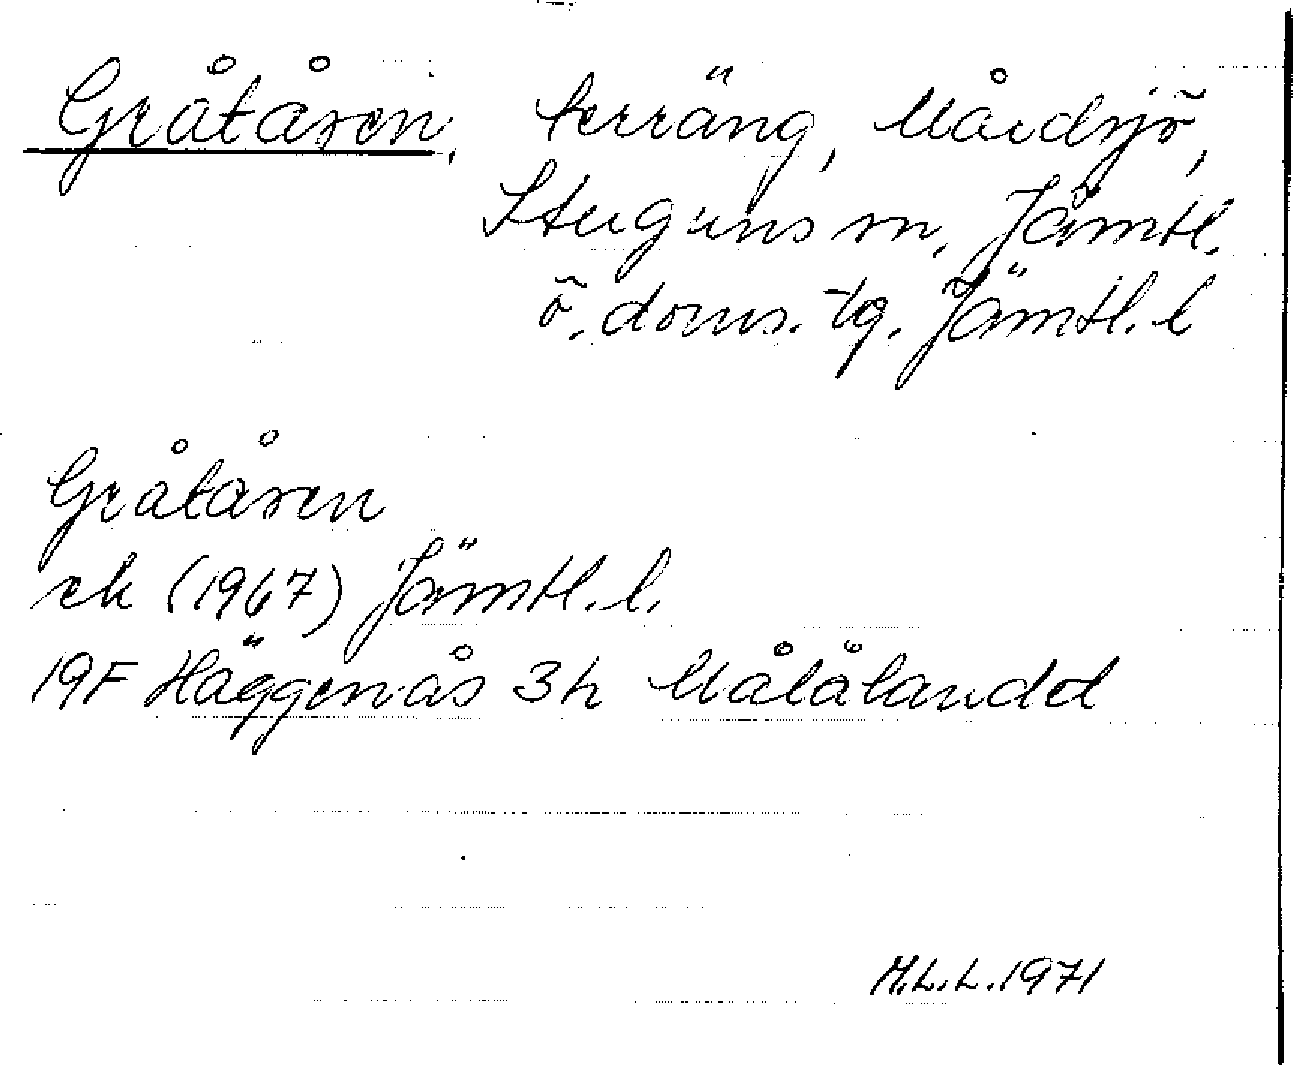 Gråtåsen, terräng, Mårdsjö,
Stuguns sn, Jämtl.
ö. doms. tg. Jämtl. l
Gråtåsen
ek (1967) Jämtl. l.
19F Häggenås 3h Målålandet
M.L.L. 1971